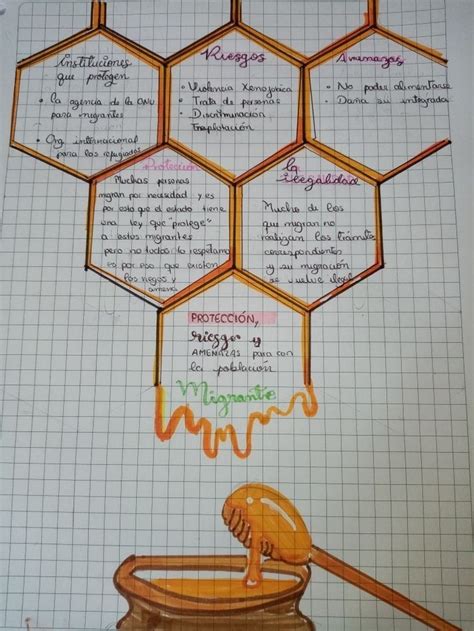 Instituciones
que protegen
• la agencia de la ONU
para migrantes
• Org internacional
para los refugiados
Riesgos
• Violencia Xenofonica
• Trata de personas
• Discriminación
Explotación
Amenazas
• No poder alimentarse
• Daña su integrada
Protección
Muchas personas
migran por necesidad y es
por esto que el estado tiene
una ley que "protege"
a estos migrantes
pero no todos lo respetamos
es por eso que existen
los riegos y
amenas
la
ilegalidad
Mucho de los
que migran no
realizan los trámites
correspondientes
y su migración
se vuelve ilegal
PROTECCIÓN,
riesgos y
AMENAZAS para con
la población
Migrante